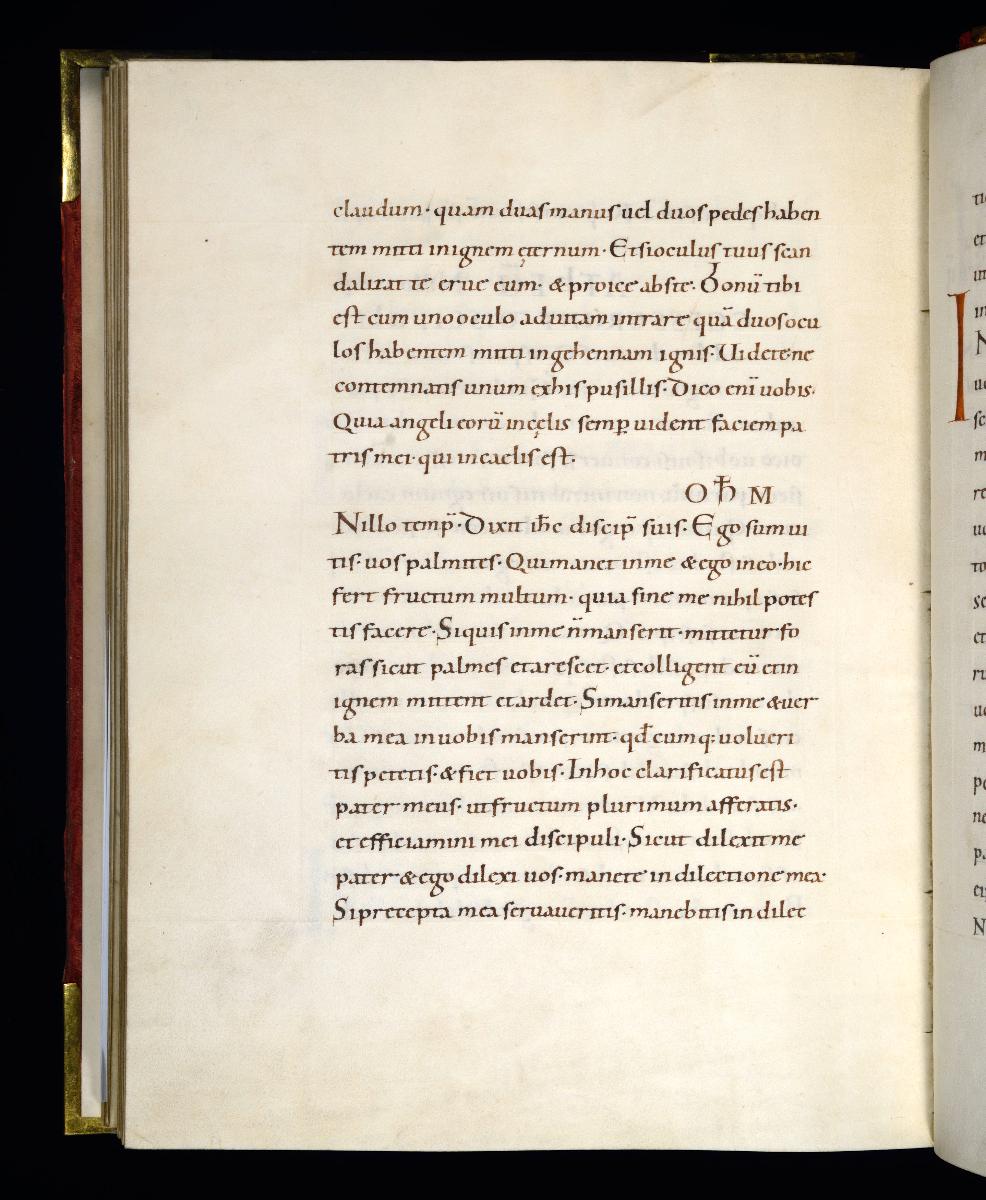 claudum· quam duas manus uel duos pedes haben
tem mitti in ignem ęternum· Et si oculus tuus scan
dalizat te erue eum· & proice abs te· Bonū tibi
est cum uno oculo ad uitam intrare quā duos ocu
los habentem mitti in gehennam ignis· Uidete ne
contemnatis unum ex his pusillis· Dico enī uobis·
Quia angeli eorū in cęlis semꝑ uident faciem pa
tris mei· qui in caelis est·
Nillo temp̄· Dixit ih̄c discip̄ suis· Ego sum ui
tis· uos palmites· Qui manet in me & ego in eo· hic
fert fructum multum· quia sine me nihil potes
tis facere· Si quis in me n̄ manserit· mittetur fo
ras sicut palmes et arescet· et colligent eū et in
ignem mittent et ardet· Si manseritis in me & uer
ba mea in uobis manserint· qđ cumq; uolueri
tis petetis· & fiet uobis· In hoc clarificatus est
pater meus· ut fructum plurimum afferatis·
et efficiamini mei discipuli· Sicut dilexit me
pater & ego dilexi uos· manete in dilectione mea·
Si precepta mea seruaueritis· manebitis in dilec